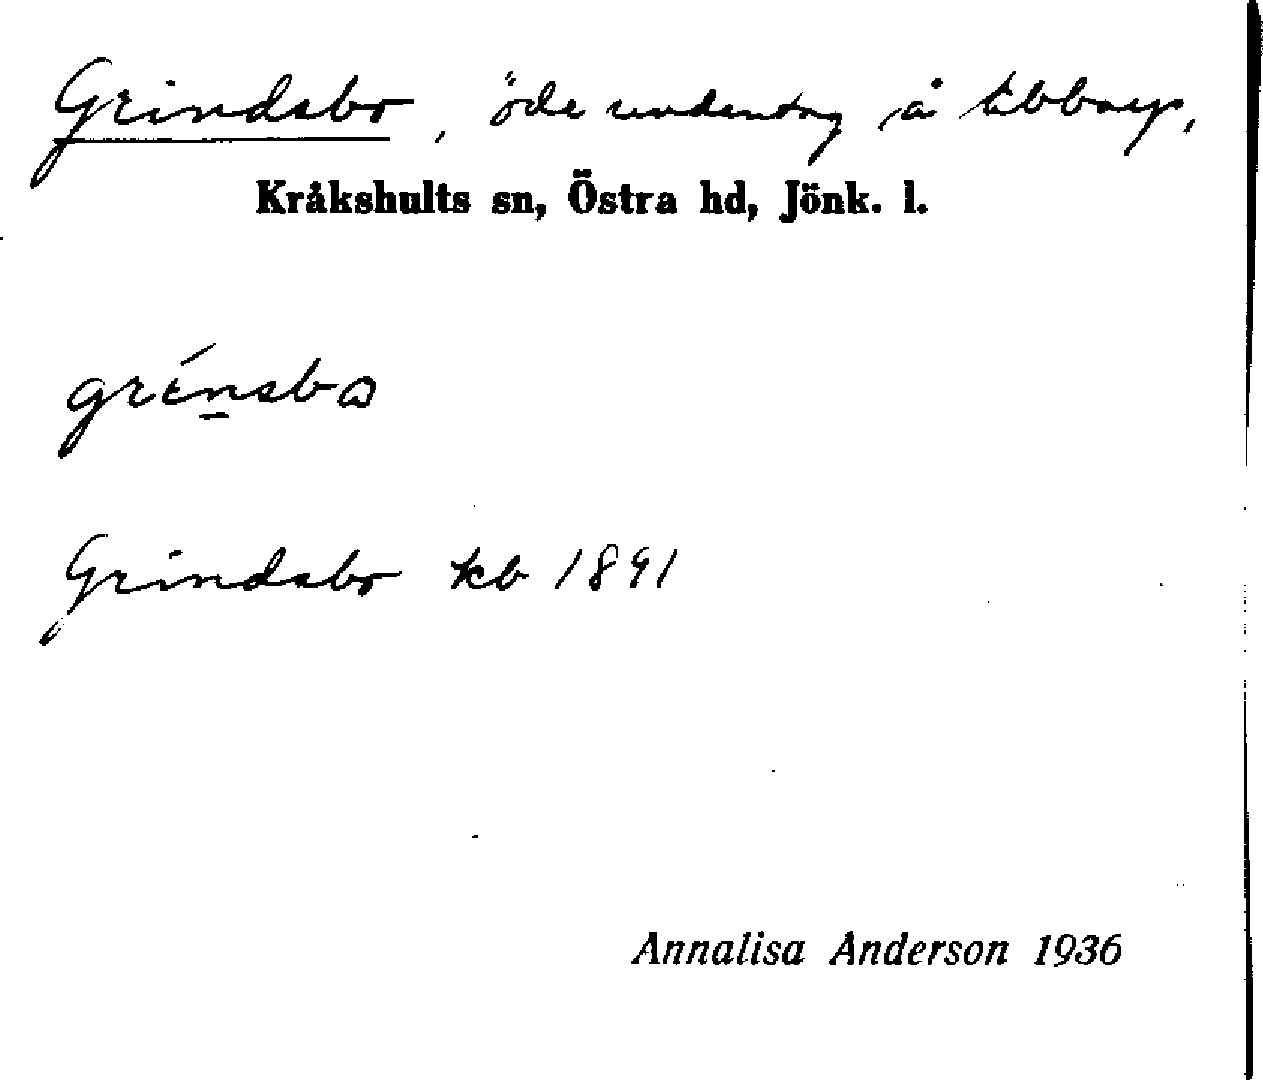 Grindsbo, öde undentng å Ebbarp,
Kråkshults sn, Östra hd, Jönk. l.
grénsbω
Grindsbo kb 1891
Annalisa Anderson 1936